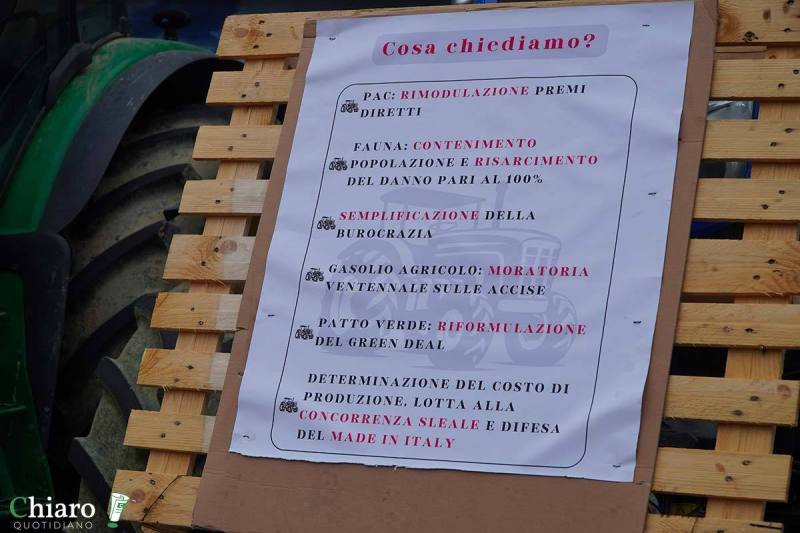 Cosa chiediamo?
PAC: RIMODULAZIONE PREMI
DIRETTI
FAUNA: CONTENIMENTO
POPOLAZIONE E RISARCIMENTO
DEL DANNO PARI AL 100%
SEMPLIFICAZIONE DELLA
BUROCRAZIA
GASOLIO AGRICOLO: MORATORIA
VENTENNALE SULLE ACCISE
PATTO VERDE: RIFORMULAZIONE
DEL GREEN DEAL
DETERMINAZIONE DEL COSTO DI
PRODUZIONE. LOTTA ALLA
CONCORRENZA SLEALE E DIFESA
DEL MADE IN ITALY
Chiaro
QUOTIDIANO